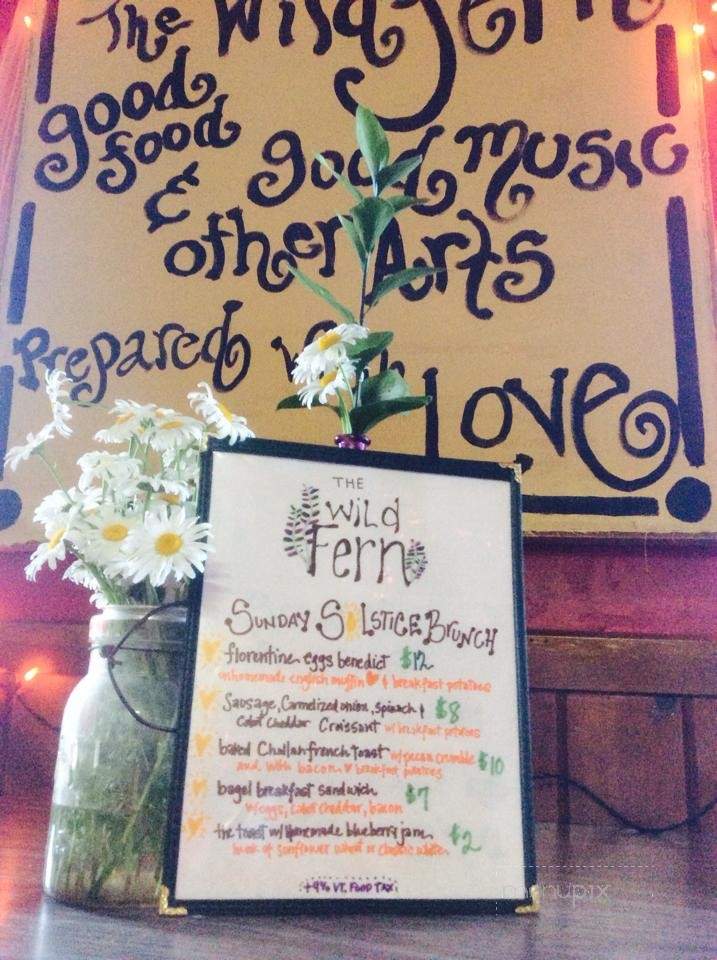 The Wild Fern
good
food
& good music
other Arts
Prepared with
Love!
THE
Wild
Fern
SUNDAY SOLSTICE BRUNCH
florentine eggs benedict $12
on homemade english muffin & breakfast potatoes
Sausage, Carmelized onion, spinach & $8
Cabot Cheddar Croissant w/ breakfast potatoes
baked Challah french toast w/ pecan crumble $10
and with bacon breakfast potatoes
bagel breakfast sandwich $7
w/ eggs, cabot cheddar, bacon
the toast w/ Homemade blueberry jam $2
hunk of sunflower wheat or classic white
+9% VT. FOOD TAX